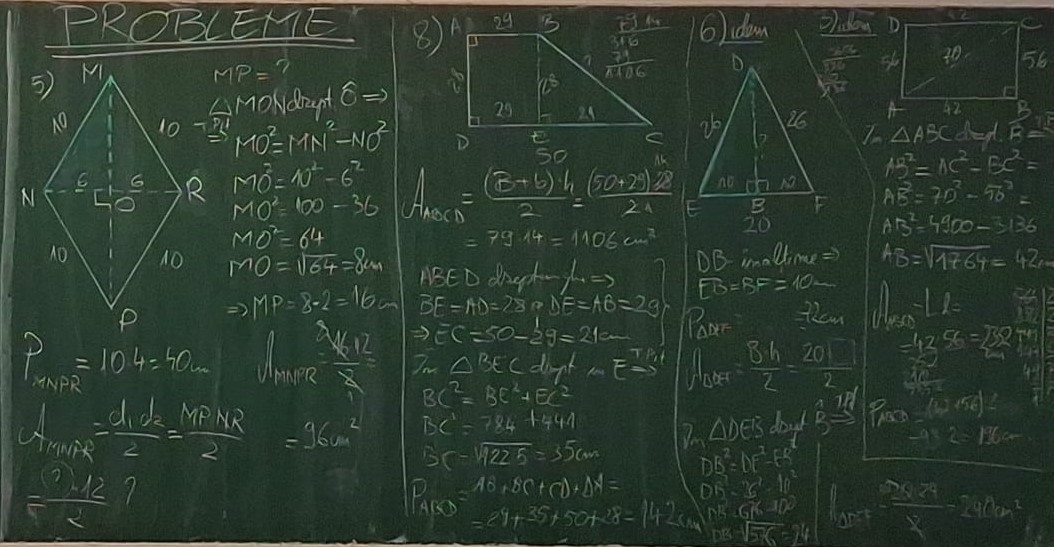 PROBLEME
5)
M
10
10
N
6
6
O
R
10
10
P
MP = ?
△MON drept Ô ⇒
T.Pit
⇒ MO² = MN² − NO²
MO² = 10² − 6²
MO² = 100 − 36
MO² = 64
MO = √64 = 8cm
⇒ MP = 8·2 = 16cm
P MNPR = 10·4 = 40cm
A MNPR = 16·12 / 2
= 96cm²
A MNPR = d₁d₂ / 2 = MP·NR / 2
= (?)·12 / 2 ?
8)
A
29
B
28
28
29
21
D
E
C
50
79·14
316
79
1106
A ABCD = (B+b)·h / 2 = (50+29)·28 / 2
= 79·14 = 1106 cm²
ABED dreptunghi ⇒
BE = AD = 28 DE = AB = 29
⇒ EC = 50 − 29 = 21cm
În △BEC drept in E ⇒ T.Pit
BC² = BE² + EC²
BC² = 784 + 441
BC = √1225 = 35cm
P ABCD = AB + BC + CD + DA =
= 29 + 35 + 50 + 28 = 142cm
6) idem
D
26
26
?
10
10
E
B
F
20
DB înălțime ⇒
EB = BF = 10cm
P DEF = 72cm
A DEF = B·h / 2 = 20 / 2
În △DEB drept B ⇒
DB² = DE² − EB²
DB² = 26² − 10²
DB² = 676 − 100
DB = √576 = 24
A DEF = = 240cm²
idem
D
42
C
56
70
56
A
42
B
În △ABC drept. B ⇒
AB² = AC² − BC² =
AB² = 70² − 56² =
AB² = 4900 − 3136
AB = √1764 = 42cm
A ABCD = L·l =
= 42·56 =
P ABCD = (42+56)·2
= 98·2 = 196cm